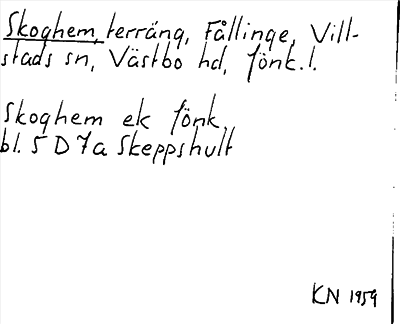 Skoghem, terräng, Fållinge, Vill-
stads sn, Västbo hd, Jönk.l.
Skoghem ek Jönk.
bl. 5 D 7a Skeppshult
KN 1959